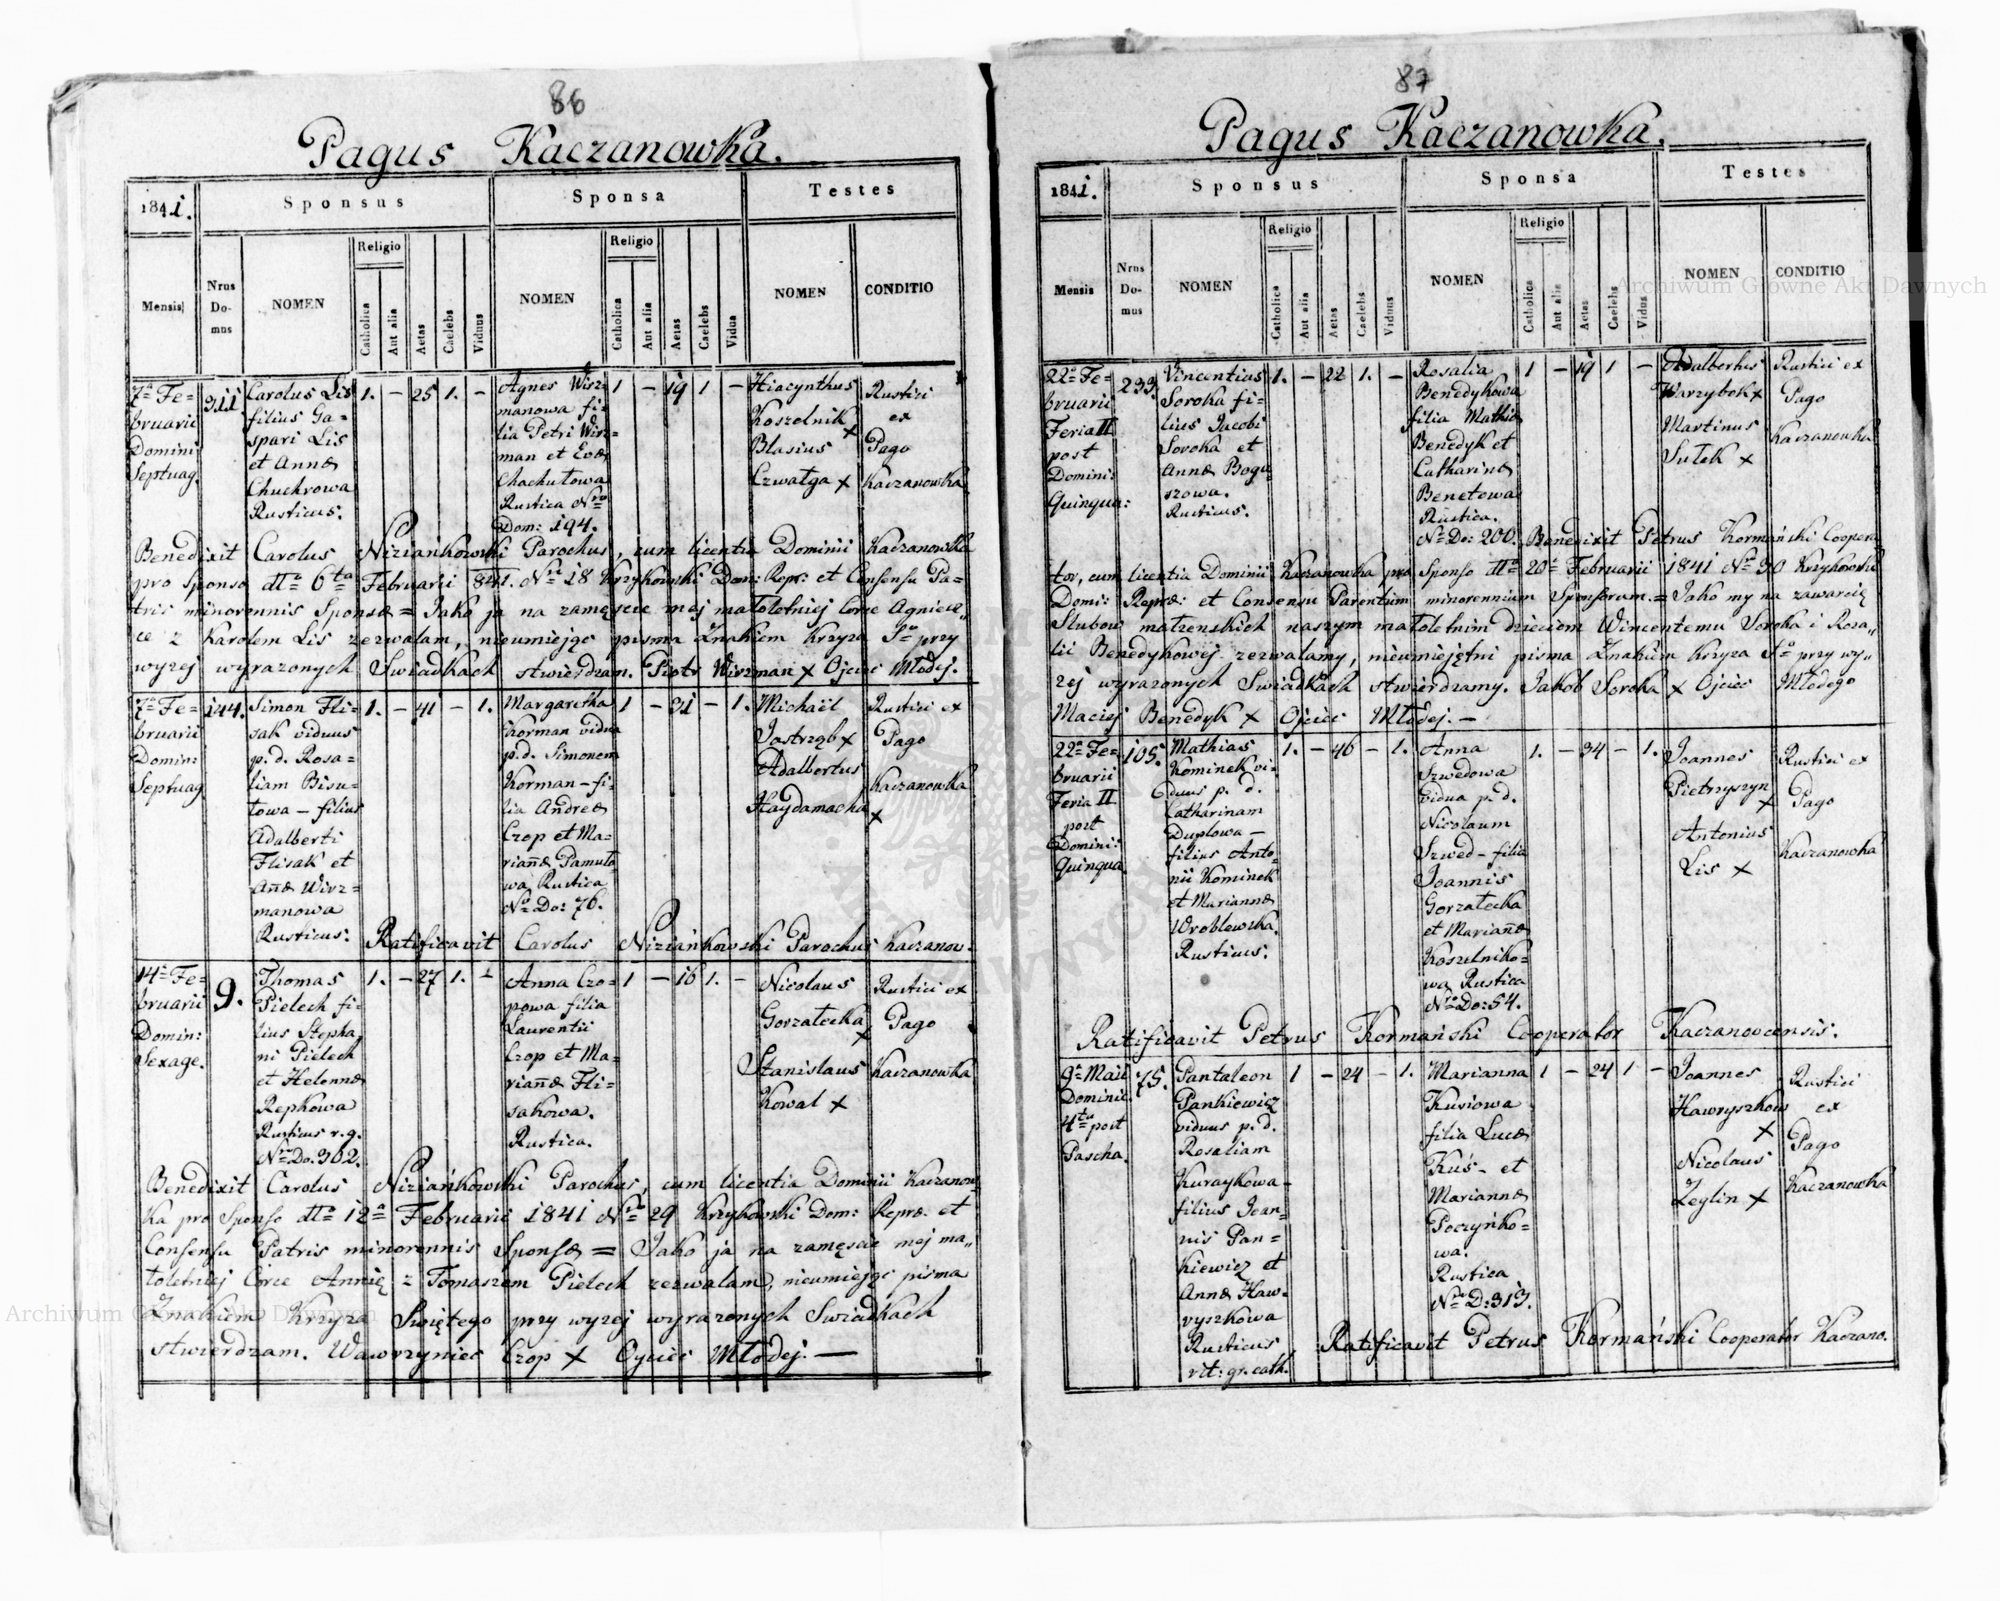 86
Pagus Kaczanowka.
1841.
Sponsus
Sponsa
Testes
Mensis
Nrus Do-mus
NOMEN
Religio
Catholica
Aut alia
Aetas
Caelebs
Viduus
NOMEN
Religio
Catholica
Aut alia
Aetas
Caelebs
Vidua
NOMEN
CONDITIO
7a Fe=
bruarii
Domini
Septuag.
311
Carolus Lis
filius Ga=
spari Lis
et Annæ
Chuchrowa
Rusticus.
1. – 25 1. –
Agnes Wirz=
manowa fi=
lia Petri Wirz=
man et Evæ
Chachutowa
Rustica Nro
Dom: 194.
1 – 19 1 –
Hiacynthus
Koszelnik
x
Blasius
Czwałga x
Rustici
ex
Pago
Kaczanowka
Benedixit Carolus Niziańkowski Parochus, cum licentia Dominii Kaczanowka
pro Sponso dto 6ta Februarii 841. Nro 28 Krzykowski Dom: Repr: et Consensu Pa=
tris minorennis Sponsæ = Jako ja na zamęscie mej małoletniej Corce Agniesz„
ce z Karolem Lis zezwalam, nieumiejąc pisma Znakiem Krzyza So przy
wyzej wyrazonych Swiadkach stwierdzam. Piotr Wirzman x Ojciec Młodej.
7a Fe=
bruarii
Domin:
Septuag
144.
Simon Fli=
sak viduus
p. d. Rosa=
liam Bisu=
towa – filius
Adalberti
Flisak et
Añæ Wirz=
manowa
Rusticus.
1. – 41 – 1.
Margaretha
Korman vidua
p. d. Simonem
Korman – fi=
lia Andreæ
Czop et Ma=
riañæ Pamuło
wa Rustica
No Do: 76.
1 – 31 – 1.
Michaël
Jastrząb x
Adalbertus
Haydamacha
x
Rustici ex
Pago
Kaczanowka
Ratificavit Carolus Niziańkowski Parochus Kaczanow.
14a Fe=
bruarii
Domin:
Sexage.
9.
Thomas
Pielech fi=
lius Stepha
ni Pielech
et Helennæ
Repkowa
Rusticus r. g.
Nro Do. 302.
1. – 27 1. –
Anna Czo=
powa filia
Laurentii
Czop et Ma=
riañæ Fli=
sakowa.
Rustica.
1 – 16 1. –
Nicolaus
Gorzałecka
x
Stanislaus
Kowal x
Rustici ex
Pago
Kaczanowka
Benedixit Carolus Niziańkowski Parochus, cum licentia Dominii Kaczanow
ka pro Sponso dto 12a Februarii 1841 Nro 29 Krzykowski Dom: Repræ: et
Consensu Patris minorennis Sponsæ = Jako ja na zamęscie mej ma„
łoletniej Corce Annię z Tomaszem Pielech zezwalam, nieumiejąc pisma
Znakiem Krzyza Swiętego przy wyzej wyrazonych Swiadkach
stwierdzam. Wawrzyniec Czop x Oyciec Młodej. —
87
Pagus Kaczanowka.
1841.
Sponsus
Sponsa
Testes
Mensis
Nrus Do-mus
NOMEN
Religio
Catholica
Aut alia
Aetas
Caelebs
Viduus
NOMEN
Religio
Catholica
Aut alia
Aetas
Caelebs
Vidua
NOMEN
CONDITIO
22a Fe=
bruarii
Feria II
post
Domini:
Quinqua:
233.
Vincentius
Soroka fi=
lius Jacobi
Soroka et
Annæ Bogu
szowa.
Rusticus.
1. – 22 1. –
Rosalia
Benedykowa
filia Mathiæ
Benedyk et
Catharinæ
Benetowa
Rustica.
No Do: 200.
1 – 19 1 –
Adalbertus
Warzybok x
Martinus
Sutek x
Rustici ex
Pago
Kaczanowka
Benedixit Petrus Kormański Coopera
tor, cum licentia Dominii Kaczanowka pro Sponso dto 20a Februarii 1841 No 30 Krzykowski
Domi: Repræ: et Consensu Parentum minorennium Sponsorum. = Jako my na zawarcie
Slubow małzenskich naszym małoletnim dzieciom Wincentemu Soroka i Roza„
lii Benedykowej zezwalamy, nieumiejętni pisma Znakiem Krzyza So przy wy„
zej wyrazonych Swiadkach stwierdzamy. Jakob Soroka x Ojciec Młodego
Maciej Benedyk x Ojciec Młodej. –
22a Fe=
bruarii
Feria II
post
Domini:
Quinqua.
105.
Mathias
Kominek vi=
duus p. d.
Catharinam
Duplowa –
filius Anto=
nii Kominek
et Mariannæ
Wroblewska.
Rusticus.
1. – 46 – 1.
Anna
Szwedowa
vidua p. d.
Nicolaum
Szwed – filia
Joannis
Gorzałecka
et Mariañæ
Koszelniko=
wa Rustica
Nro Do: 54.
1. – 34 – 1.
Joannes
Pietrzyszyn
x
Antonius
Lis x
Rustici ex
Pago
Kaczanowka
Ratificavit Petrus Kormański Cooperator Kaczanovcensis.
9a Maii
Dominic.
4ta post
Pascha.
75.
Pantaleon
Pankiewicz
viduus p. d.
Rosaliam
Kuraykowa –
filius Joan=
nis Pan=
kiewicz et
Annæ Haw=
ryszkowa
Rusticus
rit: gr. cath.
1 – 24 – 1.
Marianna
Kusiowa
filia Lucæ
Kuś – et
Mariannæ
Poczyńko=
wa.
Rustica
No D: 313.
1 – 24 1 –
Joannes
Hawryszkow
x
Nicolaus
Zeglin x
Rustici
ex
Pago
Kaczanowka
Ratificavit Petrus Kormański Cooperator Kaczano.
Archiwum Główne Akt Dawnych
Archiwum Główne Akt Dawnych